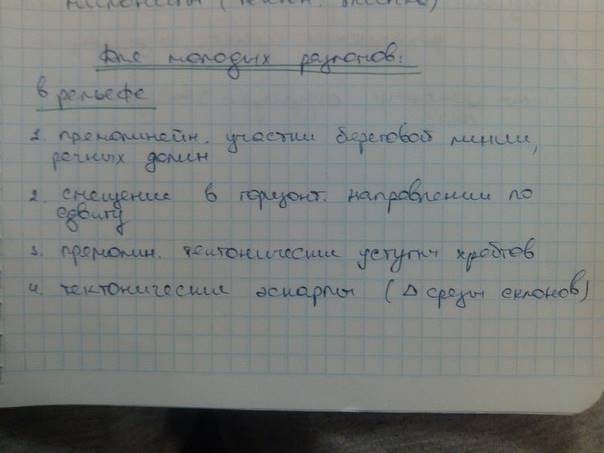 Для молодых разломов:
в рельефе
1. прямолинейн. участки береговой линии,
речных долин
2. смещение в горизонт. направлении по
сдвигу
3. прямолин. тектонические уступы хребтов
4. тектонические эскарпы (Δ срезы склонов)